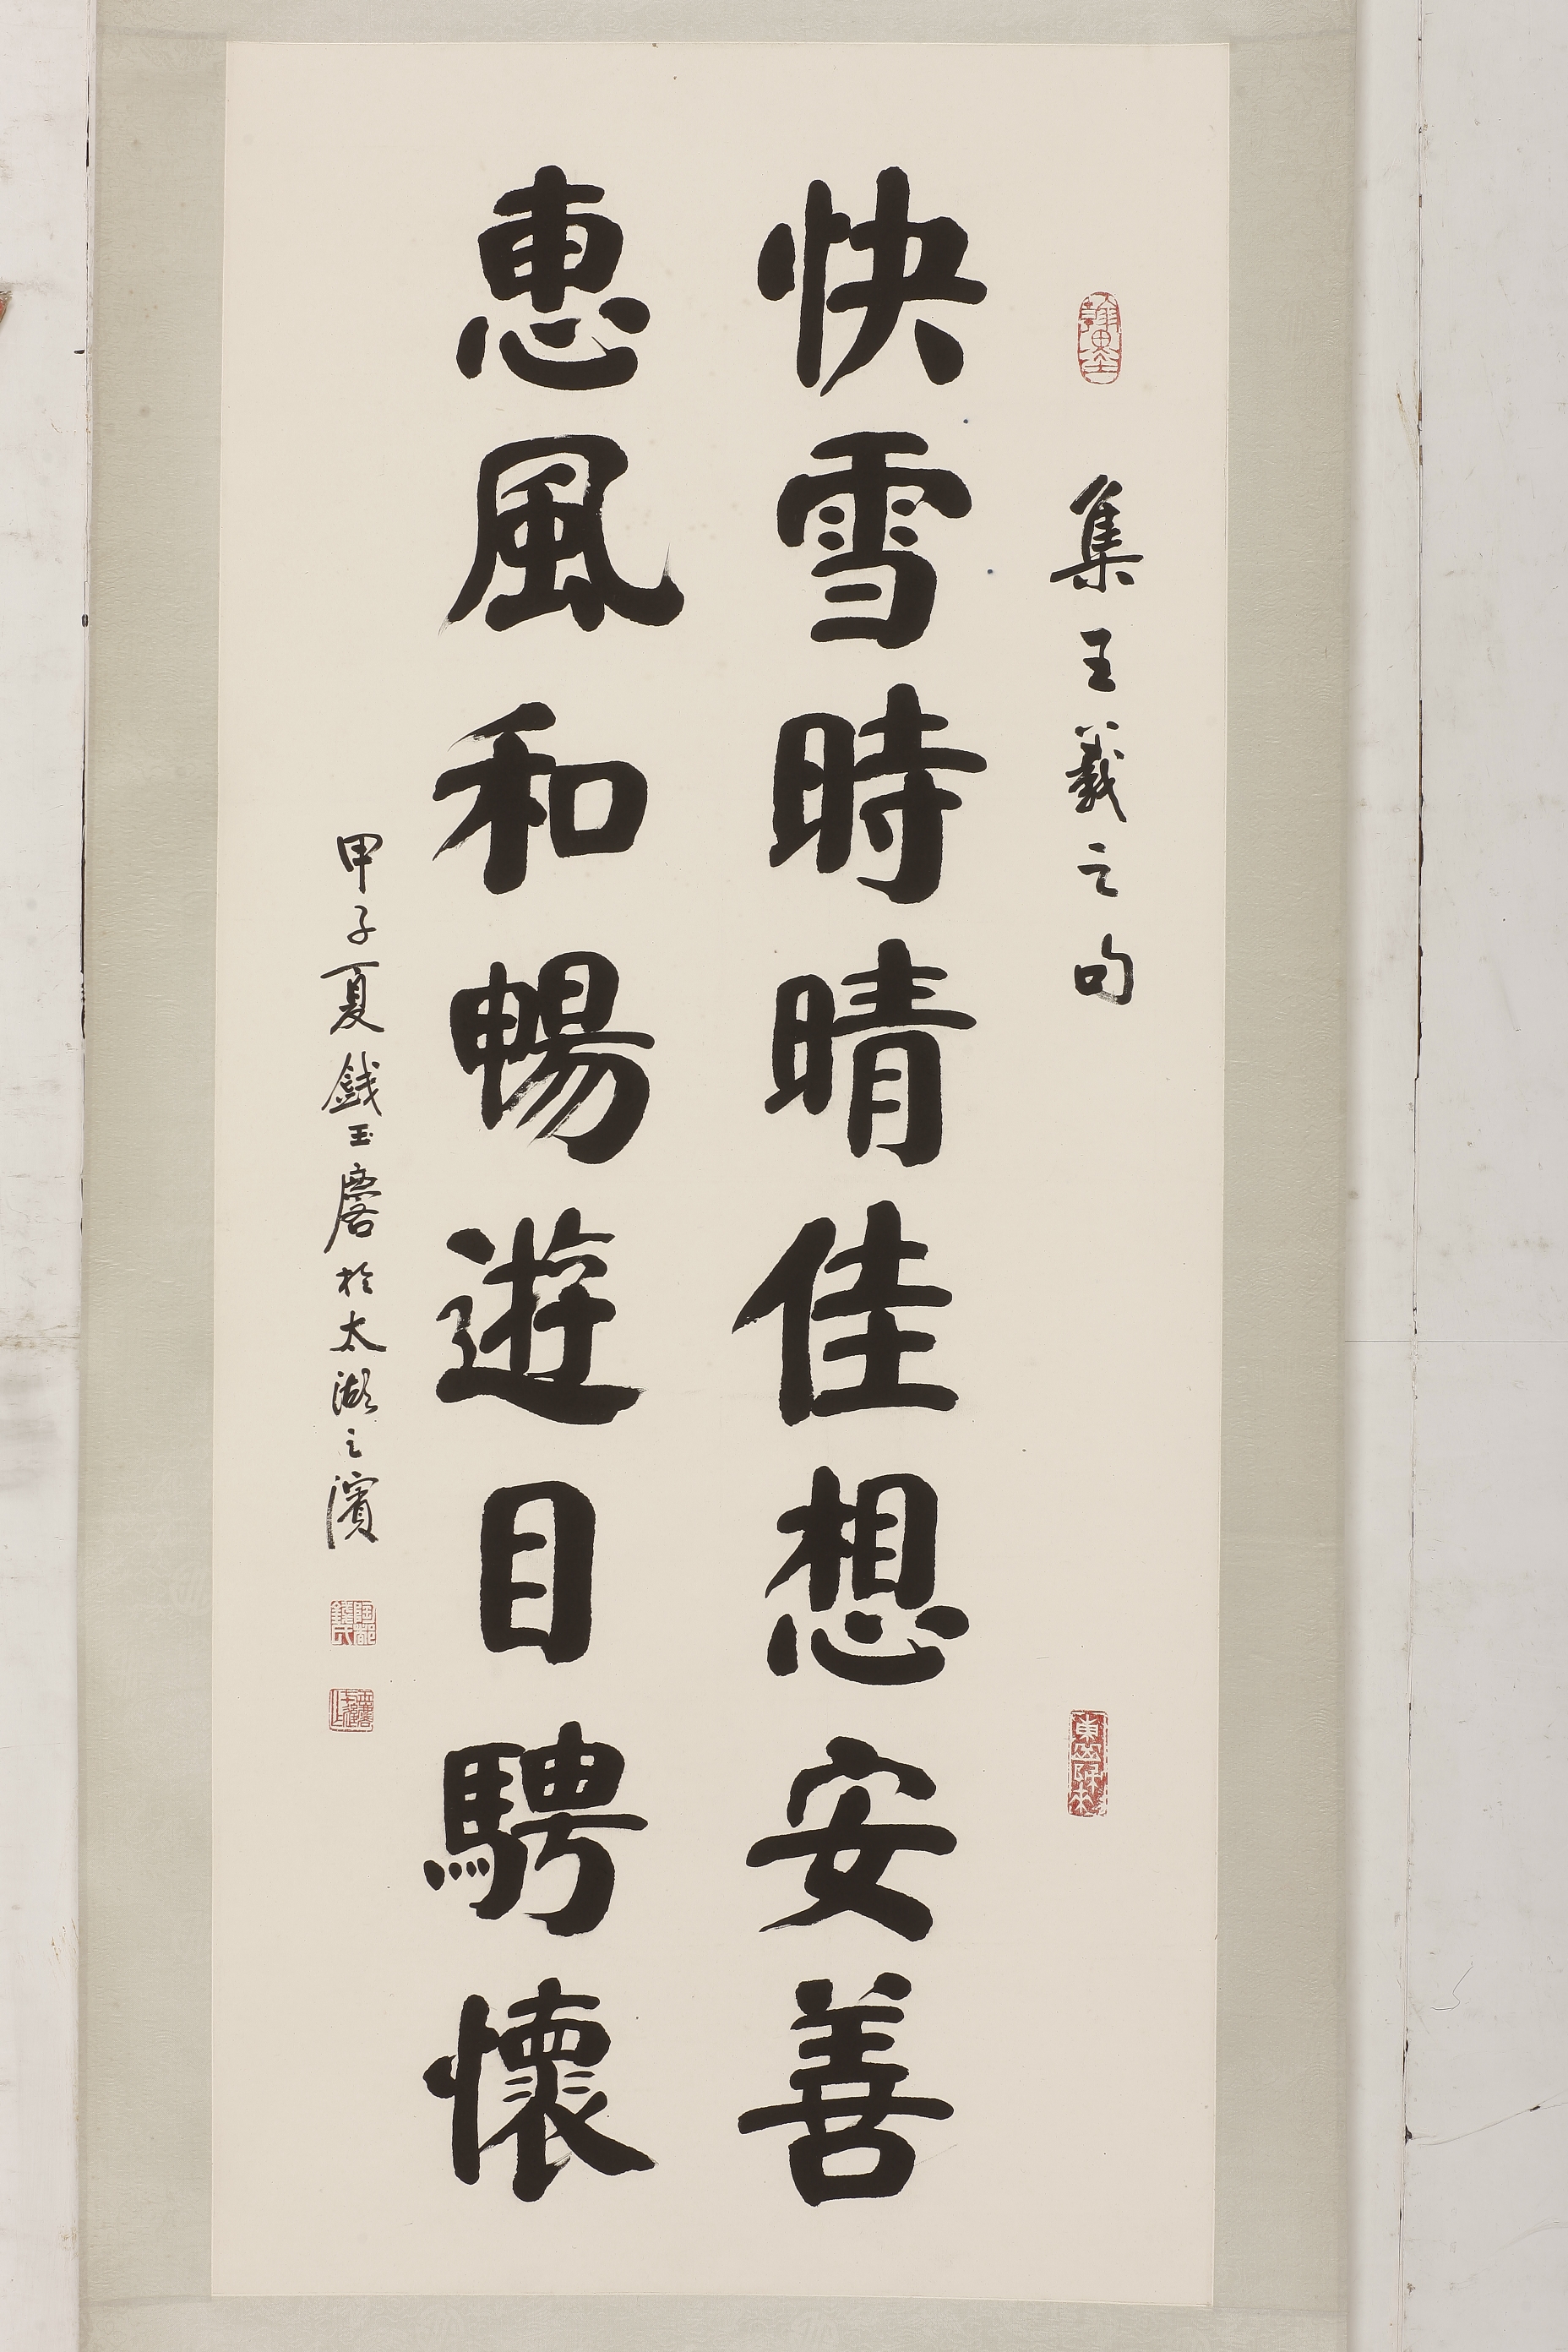 集王羲之句
快雪時晴佳想安善
惠風和暢遊目騁懷
甲子夏錢玉麐於太湖之濱
東山歸來